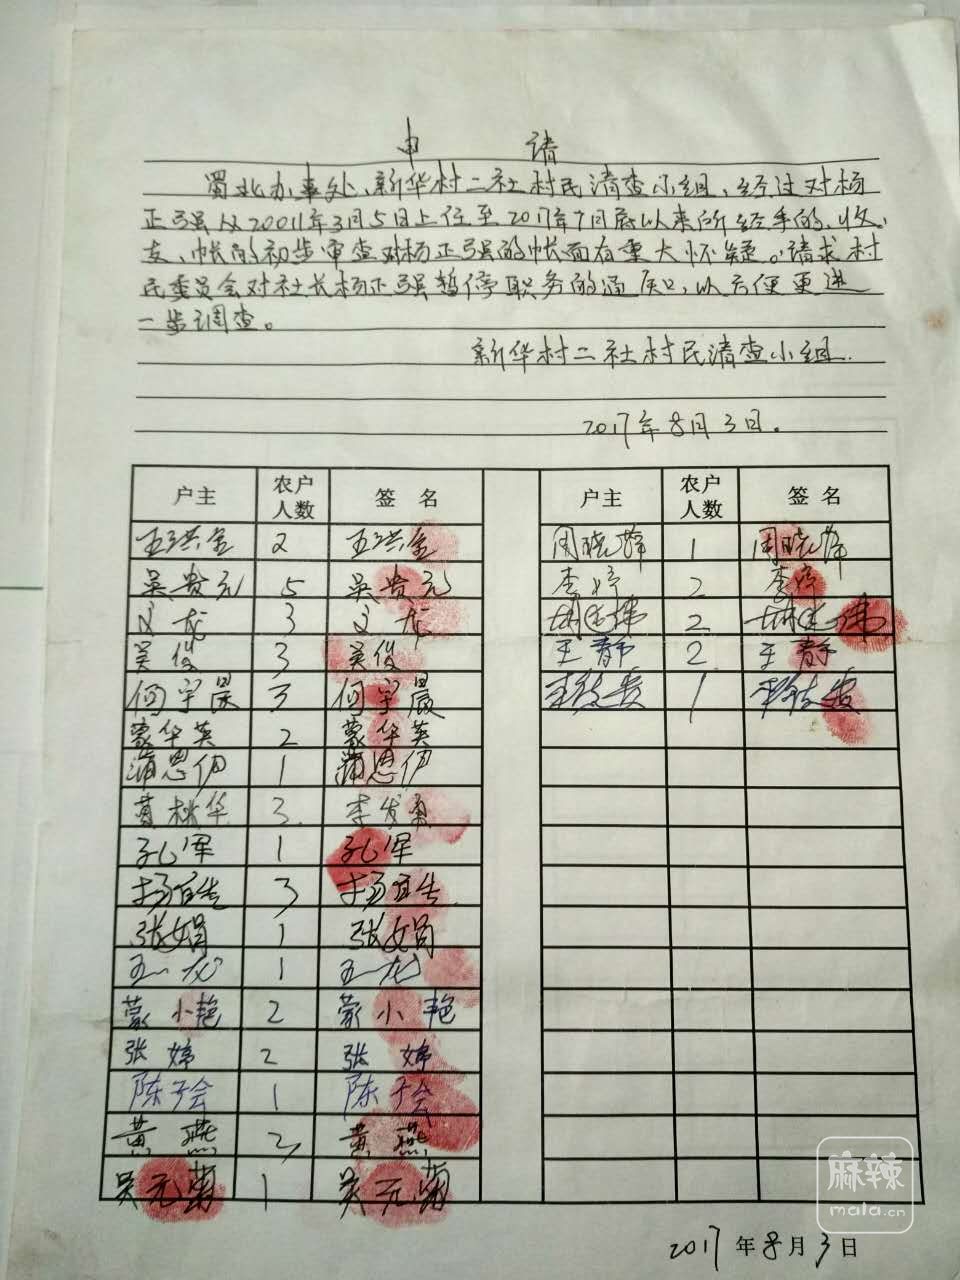 申 请
蜀北办事处、新华村二社村民清查小组,经过对杨
正强从20011年3月5日上任至2017年7月底以来所经手的、收、
支、帐的初步审查对杨正强的帐面有重大怀疑。请求村
民委员会对社长杨正强暂停职务的通知,以方便更进
一步调查。
新华村二社村民清查小组.
2017年8月3日.
户主 农户人数 签名 户主 农户人数 签名
王洪金 2 王洪金 周晓蜂 1 周晓蜂
吴贵元 5 吴贵元 李婷 2 李婷
文龙 3 文龙 2
吴俊 3 吴俊 王静 2 王静
何宇晨 3 何宇晨 1
蒙华英 2 蒙华英
蒲恩伊 1 蒲恩伊
黄秋华 3 李发勇
孔军 1 孔军
杨宜生 3 杨宜生
张娟 1 张娟
王一龙 1 王一龙
蒙小艳 2 蒙小艳
张婷 2 张婷
陈子会 1 陈子会
黄燕 2 黄燕
吴元菊 1 吴元菊
2017年8月3日
麻辣
mala.cn